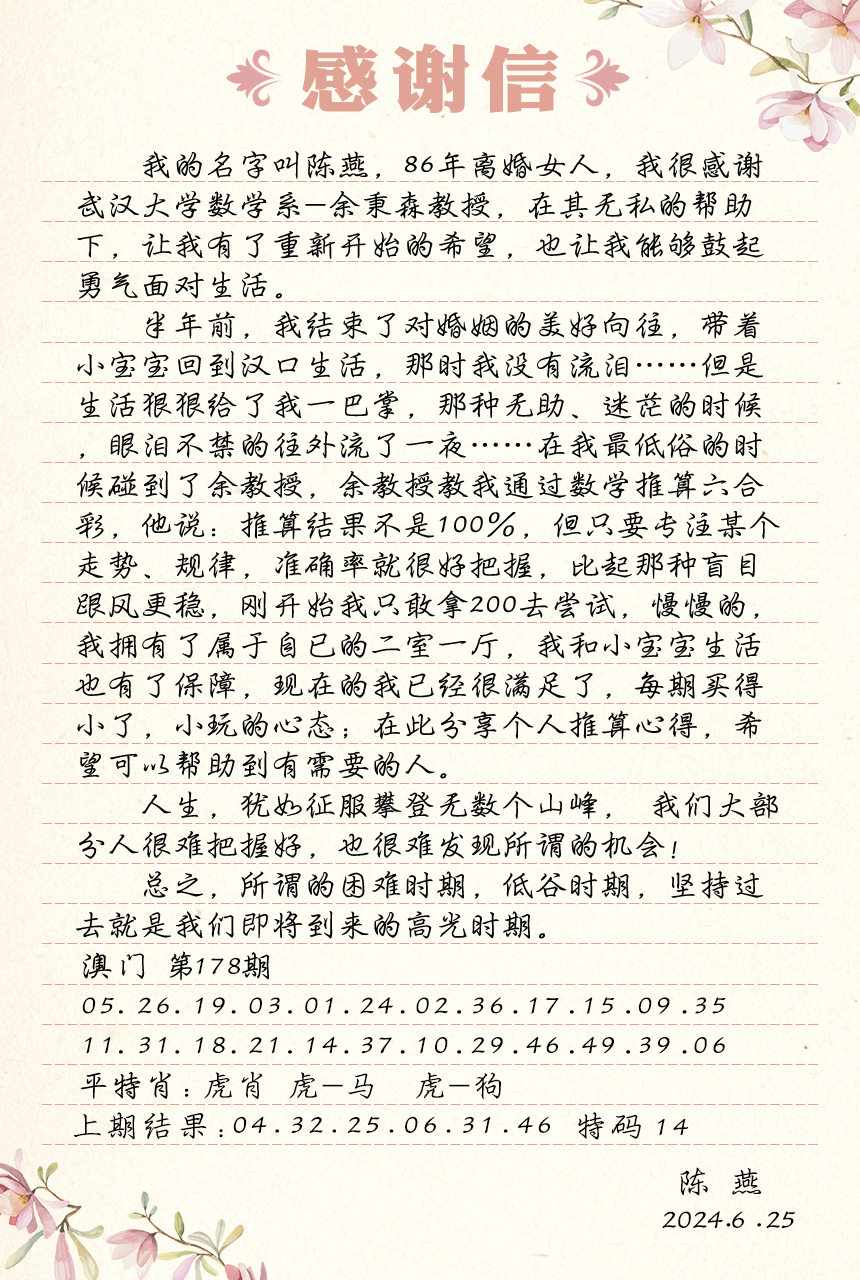 感谢信
我的名字叫陈燕，86年离婚女人，我很感谢
武汉大学数学系—余秉森教授，在其无私的帮助
下，让我有了重新开始的希望，也让我能够鼓起
勇气面对生活。
半年前，我结束了对婚姻的美好向往，带着
小宝宝回到汉口生活，那时我没有流泪……但是
生活狠狠给了我一巴掌，那种无助、迷茫的时候
，眼泪不禁的往外流了一夜……在我最低俗的时
候碰到了余教授，余教授教我通过数学推算六合
彩，他说：推算结果不是100%，但只要专注某个
走势、规律，准确率就很好把握，比起那种盲目
跟风更稳，刚开始我只敢拿200去尝试，慢慢的，
我拥有了属于自已的二室一厅，我和小宝宝生活
也有了保障，现在的我已经很满足了，每期买得
小了，小玩的心态；在此分享个人推算心得，希
望可以帮助到有需要的人。
人生，犹如征服攀登无数个山峰， 我们大部
分人很难把握好，也很难发现所谓的机会！
总之，所谓的困难时期，低谷时期，坚持过
去就是我们即将到来的高光时期。
澳门 第178期
05.26.19.03.01.24.02.36.17.15.09.35
11.31.18.21.14.37.10.29.46.49.39.06
平特肖：虎肖 虎—马 虎—狗
上期结果：04.32.25.06.31.46 特码 14
陈 燕
2024.6.25